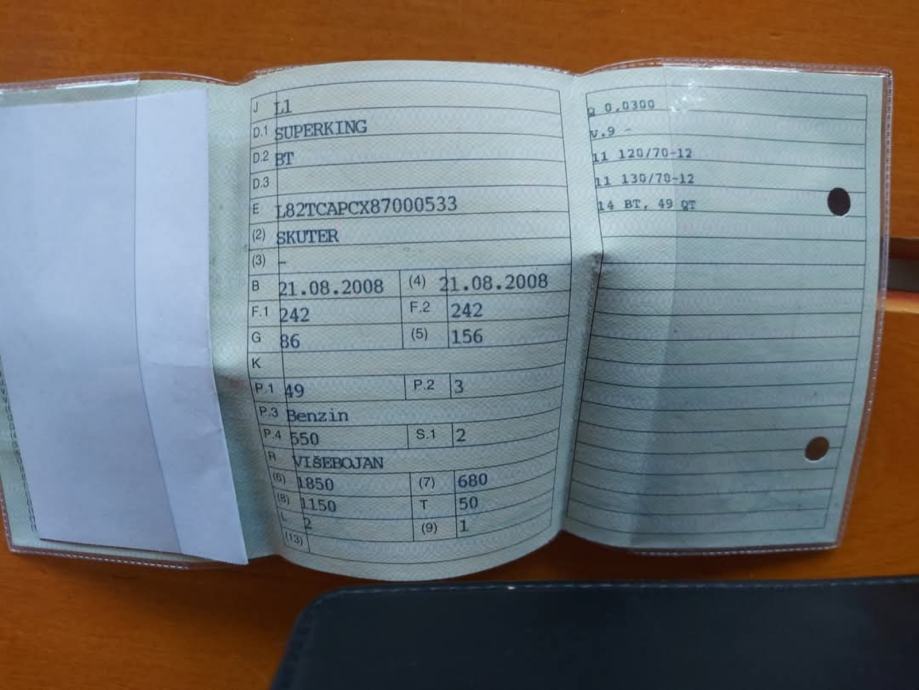 J L1
D.1 SUPERKING
D.2 BT
D.3
E L82TCAPCX87000533
(2) SKUTER
(3) -
B 21.08.2008 (4) 21.08.2008
F.1 242 F.2 242
G 86 (5) 156
K
P.1 49 P.2 3
P.3 Benzin
P.4 550 S.1 2
R VIŠEBOJAN
(6) 1850 (7) 680
(8) 1150 T 50
L 2 (9) 1
(13)
Q 0,0300
V.9 -
11 120/70-12
11 130/70-12
14 BT, 49 QT